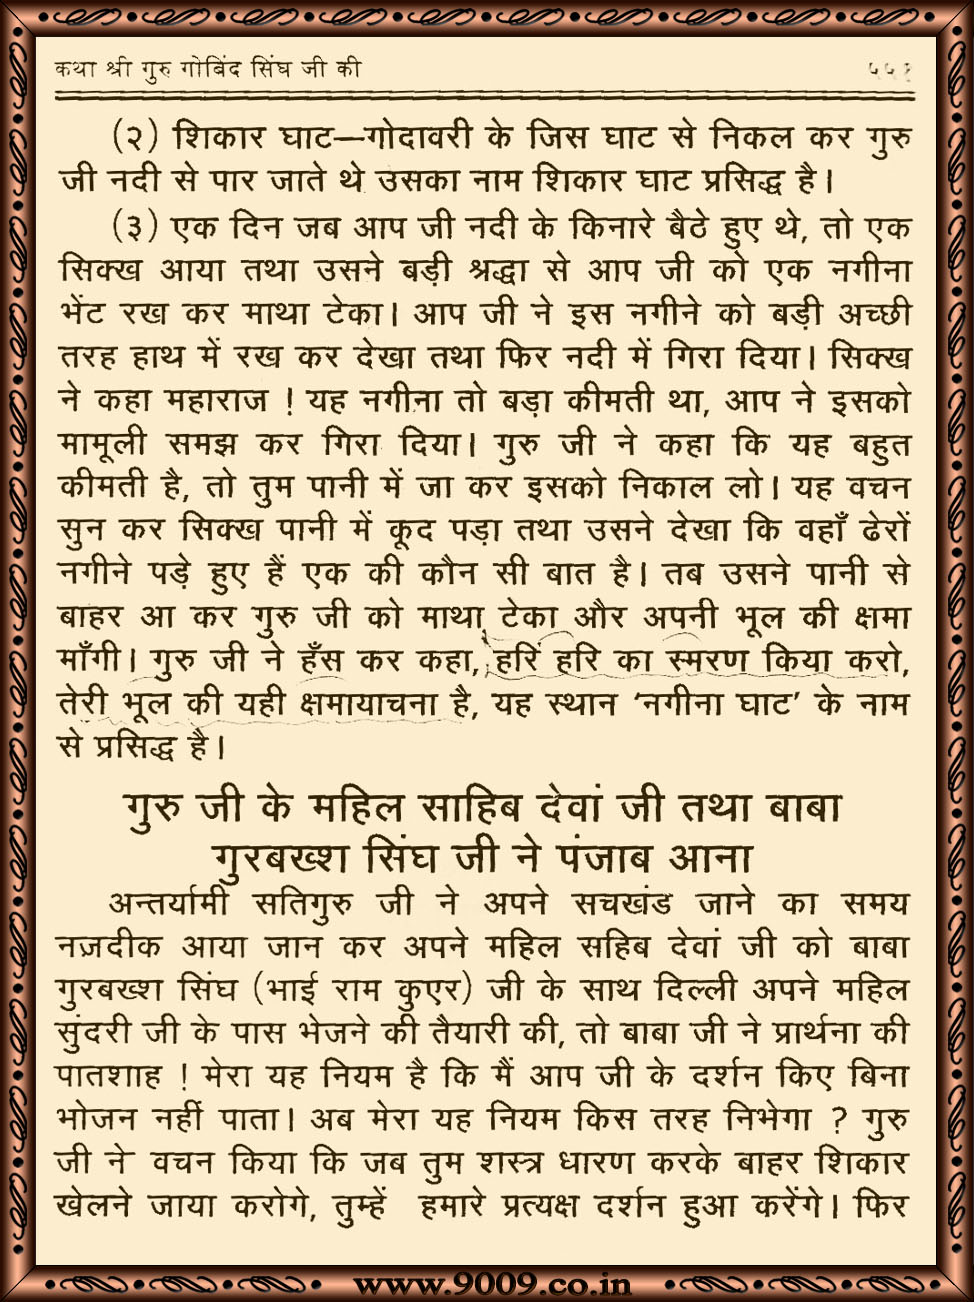 कथा श्री गुरु गोबिंद सिंघ जी की
(२) शिकार घाट—गोदावरी के जिस घाट से निकल कर गुरु
जी नदी से पार जाते थे उसका नाम शिकार घाट प्रसिद्ध है।
(३) एक दिन जब आप जी नदी के किनारे बैठे हुए थे, तो एक
सिक्ख आया तथा उसने बड़ी श्रद्धा से आप जी को एक नगीना
भेंट रख कर माथा टेका। आप जी ने इस नगीने को बड़ी अच्छी
तरह हाथ में रख कर देखा तथा फिर नदी में गिरा दिया। सिक्ख
ने कहा महाराज ! यह नगीना तो बड़ा कीमती था, आप ने इसको
मामूली समझ कर गिरा दिया। गुरु जी ने कहा कि यह बहुत
कीमती है, तो तुम पानी में जा कर इसको निकाल लो। यह वचन
सुन कर सिक्ख पानी में कूद पड़ा तथा उसने देखा कि वहाँ ढेरों
नगीने पड़े हुए हैं एक की कौन सी बात है। तब उसने पानी से
बाहर आ कर गुरु जी को माथा टेका और अपनी भूल की क्षमा
माँगी। गुरु जी ने हँस कर कहा, हरि हरि का स्मरण किया करो,
तेरी भूल की यही क्षमायाचना है, यह स्थान ‘नगीना घाट’ के नाम
से प्रसिद्ध है।
गुरु जी के महिल साहिब देवां जी तथा बाबा
गुरबख्श सिंघ जी ने पंजाब आना
अन्तर्यामी सतिगुरु जी ने अपने सचखंड जाने का समय
नज़दीक आया जान कर अपने महिल सहिब देवां जी को बाबा
गुरबख्श सिंघ (भाई राम कुएर) जी के साथ दिल्ली अपने महिल
सुंदरी जी के पास भेजने की तैयारी की, तो बाबा जी ने प्रार्थना की
पातशाह ! मेरा यह नियम है कि मैं आप जी के दर्शन किए बिना
भोजन नहीं पाता। अब मेरा यह नियम किस तरह निभेगा ? गुरु
जी ने वचन किया कि जब तुम शस्त्र धारण करके बाहर शिकार
खेलने जाया करोगे, तुम्हें हमारे प्रत्यक्ष दर्शन हुआ करेंगे। फिर
www.9009.co.in